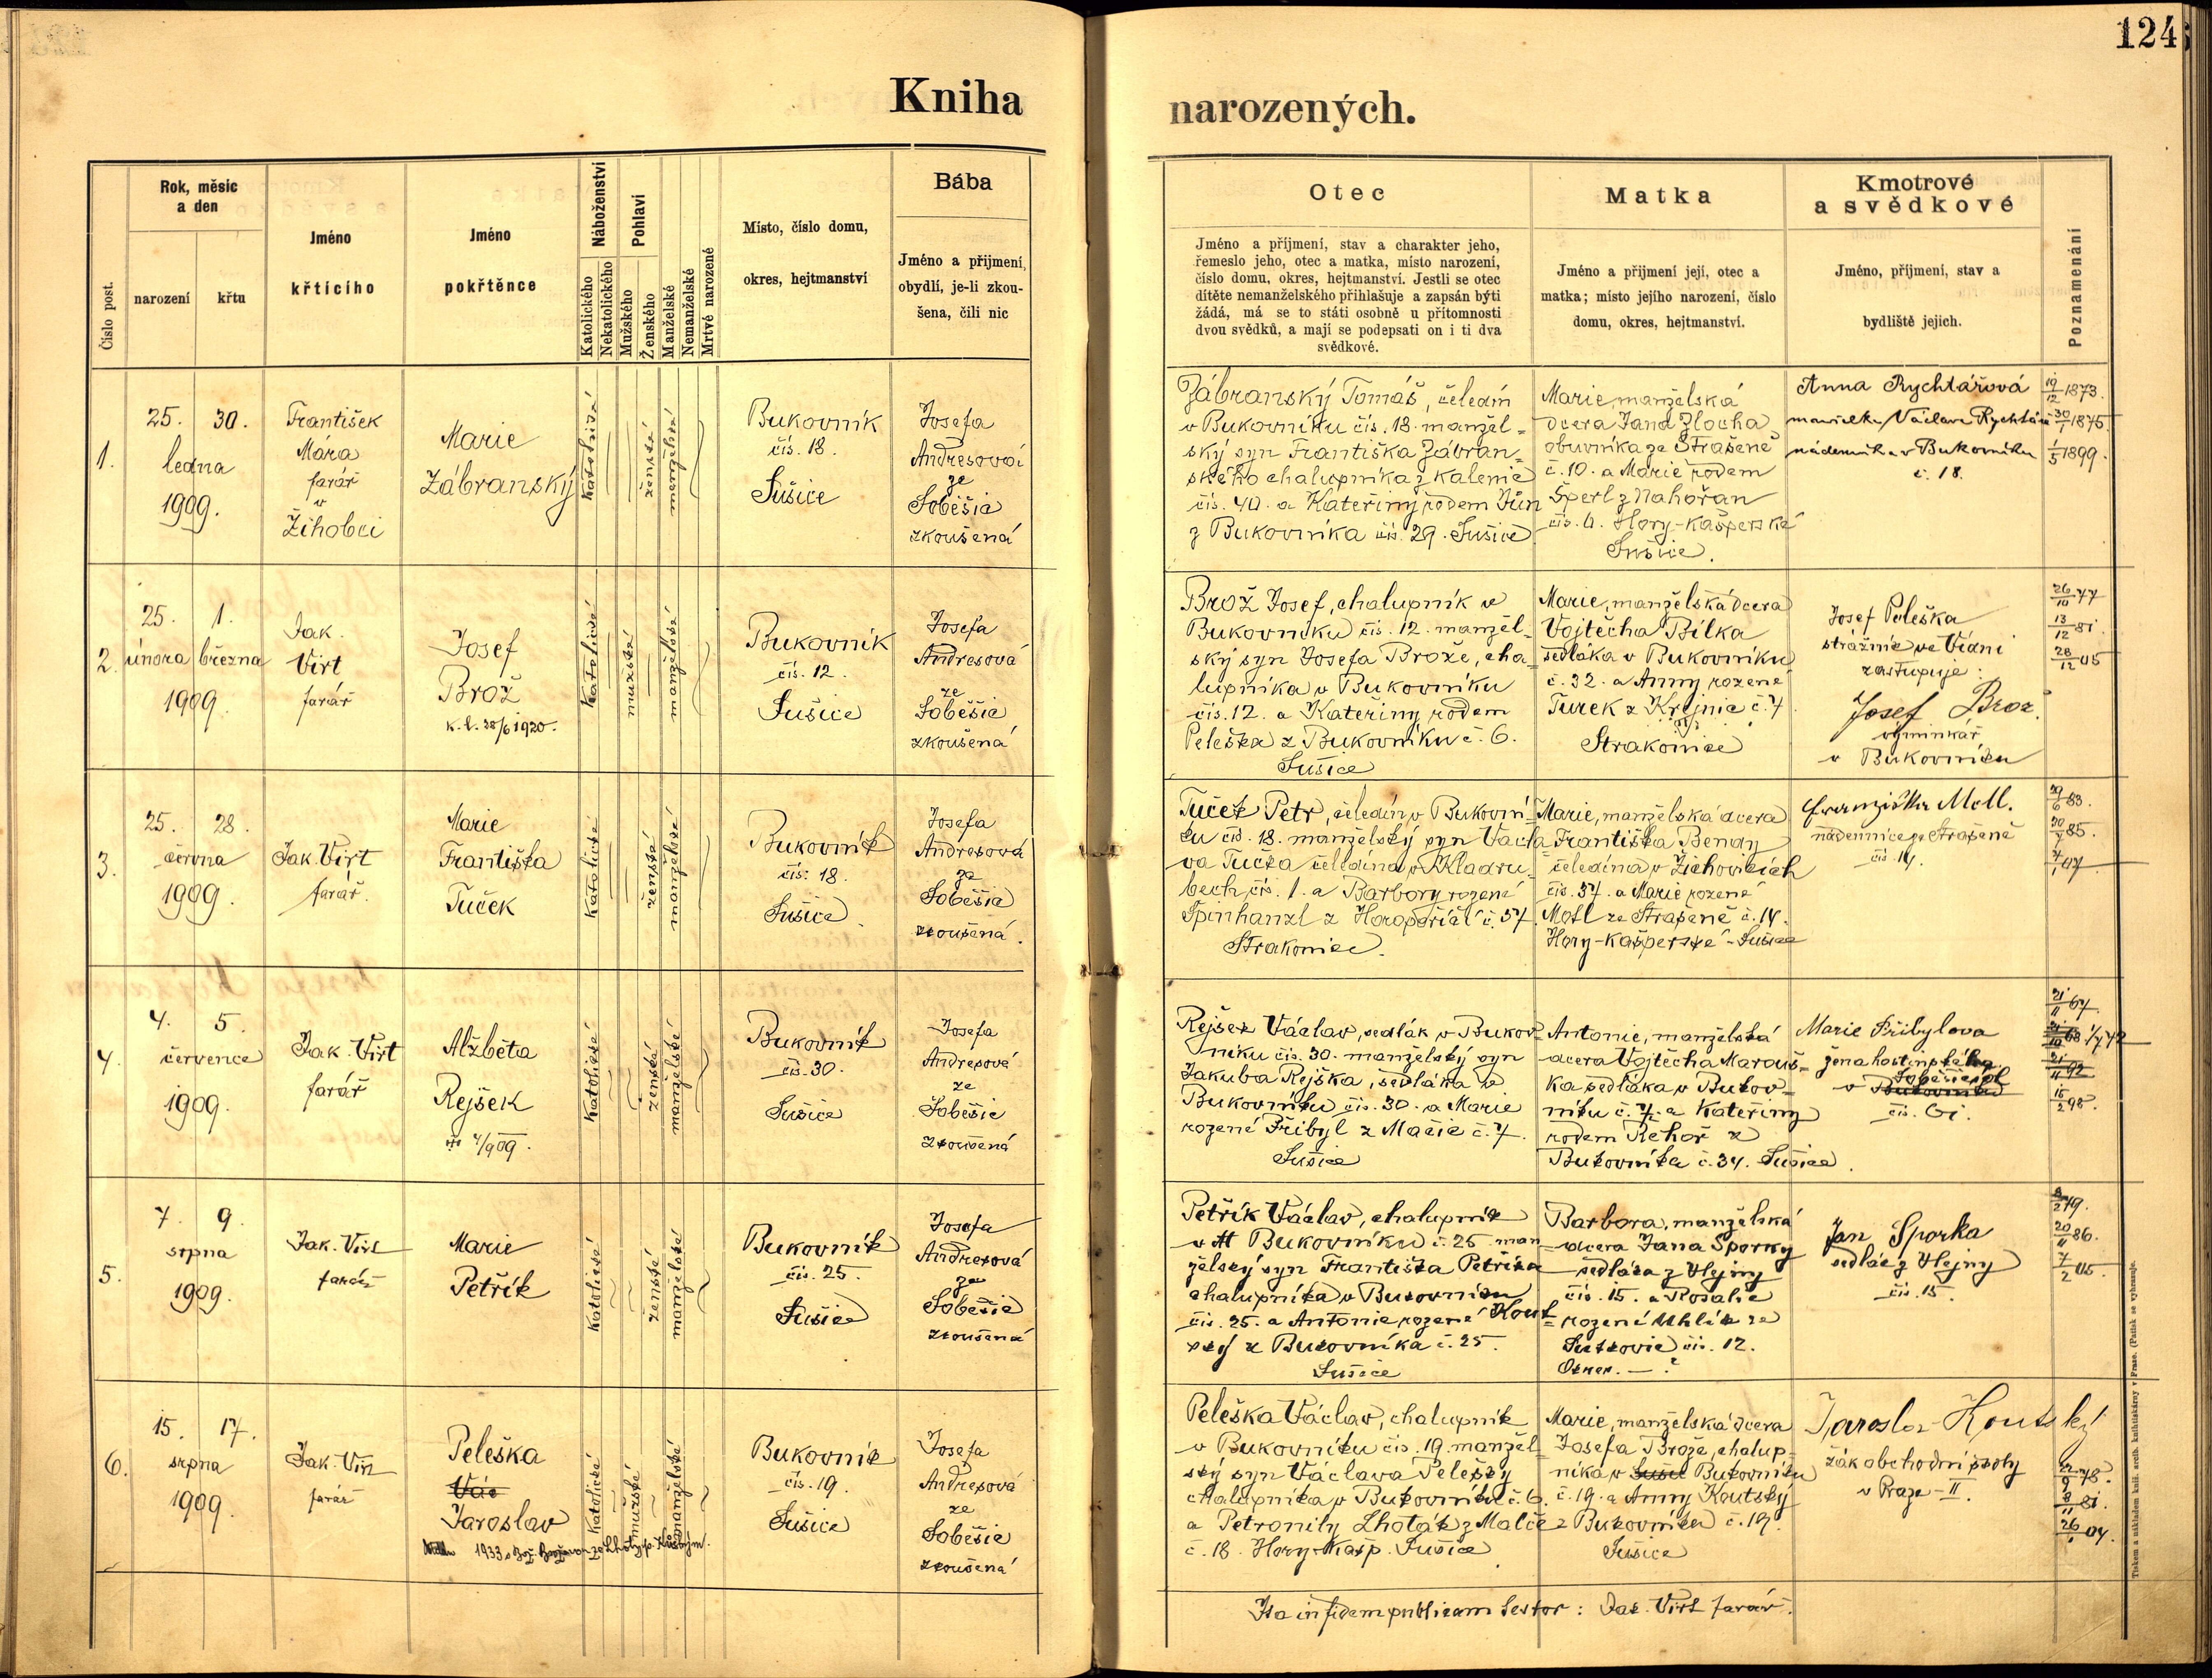 124
Kniha narozených.
Číslo post.
Rok, měsíc
a den
narození
křtu
Jméno
křtícího
Jméno
pokřtěnce
Náboženství
Katolického
Nekatolického
Pohlaví
Mužského
Ženského
Manželské
Nemanželské
Mrtvě narozené
Místo, číslo domu,
okres, hejtmanství
Bába
Jméno a přijmení,
obydlí, je-li zkou-
šena, čili nic
Otec
Jméno a příjmení, stav a charakter jeho,
řemeslo jeho, otec a matka, místo narození,
číslo domu, okres, hejtmanství. Jestli se otec
dítěte nemanželského přihlašuje a zapsán býti
žádá, má se to státi osobně u přítomnosti
dvou svědků, a mají se podepsati on i ti dva
svědkové.
Matka
Jméno a přijmení její, otec a
matka; místo jejího narození, číslo
domu, okres, hejtmanství.
Kmotrové
a svědkové
Jméno, příjmení, stav a
bydliště jejich.
Poznamenání
1.
25. 30.
ledna
1909.
František
Mára
farář
v
Žihobci
Marie
Zábranský
katolické
ženské
manželské
Bukovník
čís. 18.
Sušice
Josefa
Andresová
ze
Soběšic
zkoušená
Zábranský Tomáš, čeledín
v Bukovníku čís. 18. manžel-
ský syn Františka Zábran-
ského chalupníka z Kalenic
čís. 40. a Kateřiny rodem
z Bukovníka čís. 29. Sušice
Marie, manželská
dcera Jana Zlocha
obuvníka ze Strašeně
č. 10. a Marie rodem
Šperl z Nahořan
čís. 4. Hory-Kašperské
Sušice.
Anna Rychtářová
manželka Václava Rychtáře
nádeníka v Bukovníku
č. 18.
19/12 1873.
30/1 1875.
1/5 1899.
2.
25. 1.
února března
1909.
Jak.
Virt
farář
Josef
Brož
k. l. 28/6 1920.
katolické
mužské
manželské
Bukovník
čís. 12.
Sušice
Josefa
Andresová
ze
Soběšic
zkoušená
Brož Josef, chalupník v
Bukovníku čís. 12. manžel-
ský syn Josefa Brože, cha-
lupníka v Bukovníku
čís. 12. a Kateřiny rodem
Peleška z Bukovníku č. 6.
Sušice
Marie, manželská dcera
Vojtěcha Bílka
sedláka v Bukovníku
č. 32. a Anny rozené
Turek z Krejnic č. 7
Strakonice
Josef Peleška
strážník ve Vídni
zastupuje:
Josef Brož.
výminkář
v Bukovníku
26/10 77
13/12 81.
28/12 05
3.
25. 28.
června
1909.
Jak. Virt
farář.
Marie
Františka
Tuček
katolické
ženské
manželské
Bukovník
čís. 18.
Sušice
Josefa
Andresová
ze
Soběšic
zkoušená.
Tuček Petr, čeledín v Bukovní-
ku čís. 18. manželský syn Václa-
va Tučka čeledína v Kladru-
bech čís. 1. a Barbory rozené
Špinhanzl z č. 57.
Strakonice.
Marie, manželská dcera
Františka Bendy
čeledína v Žichovicích
čís. 57. a Marie rozené
Motl ze Strašeně č. 14.
Hory-Kašperské-Sušice
Franziska Motl.
nádennice ze Strašeně
čís. 14.
29/6 83.
85.
07
4.
4. 5.
července
1909.
Jak. Virt
farář
Alžběta
Rejšek
4/9 09.
katolické
ženské
manželské
Bukovník
čís. 30.
Sušice
Josefa
Andresová
ze
Soběšic
zkoušená
Rejšek Václav, sedlák v Bukov-
níku čís. 30. manželský syn
Jakuba Rejška, sedláka v
Bukovníku čís. 30. a Marie
rozené Přibyl z Mačic č. 7.
Sušice
Antonie, manželská
dcera Vojtěcha Marouš-
ka sedláka v Bukov-
níku č. 7. a Kateřiny
rodem Řehoř z
Bukovníka č. 34. Sušice.
Marie Přibylova
žena hostinského
Soběšicích
v Bukovníku
čís. 61.
21/11 67
21/11 92
15/2 98.
5.
7. 9.
srpna
1909.
Jak. Virt
farář
Marie
Petřík
katolické
ženské
manželské
Bukovník
čís. 25.
Sušice
Josefa
Andresová
ze
Soběšic
zkoušená
Petřík Václav, chalupník
v Bukovníku č. 25. man
želský syn Františka Petříka
chalupníka v Bukovníku
čís. 25. a Antonie rozené Kout-
ský z Bukovníka č. 25.
Sušice
Barbora, manželská
dcera Jana Sporky
sedláka z Vlejiny
čís. 15. a Rosalie
rozené Uhlík ze
čís. 12.
Okres. — ?
Jan Sporka
sedlák z Vlejiny
čís. 15.
79.
20/11 86.
7/2 05.
6.
15. 17.
srpna
1909.
Jak. Virt
farář
Peleška
Vác
Jaroslav
1933
katolické
mužské
manželské
Bukovník
čís. 19.
Sušice
Josefa
Andresová
ze
Soběšic
zkoušená
Peleška Václav, chalupník
v Bukovníku čís. 19. manžel-
ský syn Václava Pelešky
chalupníka v Bukovníku č. 6.
a Petronily Lhoták z Malče
č. 18. Hory-Kasp. Sušice
Marie, manželská dcera
Josefa Brože, chalup-
níka v Bukovníku
č. 19. a Anny Koutský
z Bukovníku č. 19.
Sušice
Jaroslav Koutský
žák obchodní školy
v Praze - II.
22/9 78.
8/11 81.
26/1 04.
Ita in fidem publicam testor: Jak. Virt farář.
Tiskem a nákladem kníž. arcib. knihtiskárny v Praze. (Patisk se vyhrazuje.